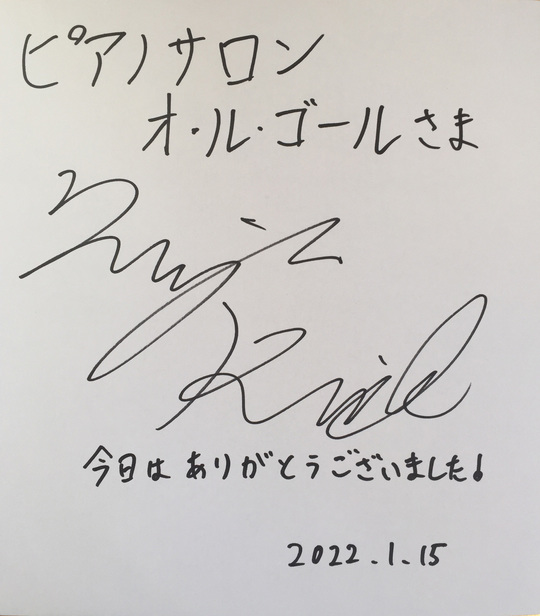 ピアノサロン
オ・ル・ゴールさま
今日はありがとうございました!
2022.1.15